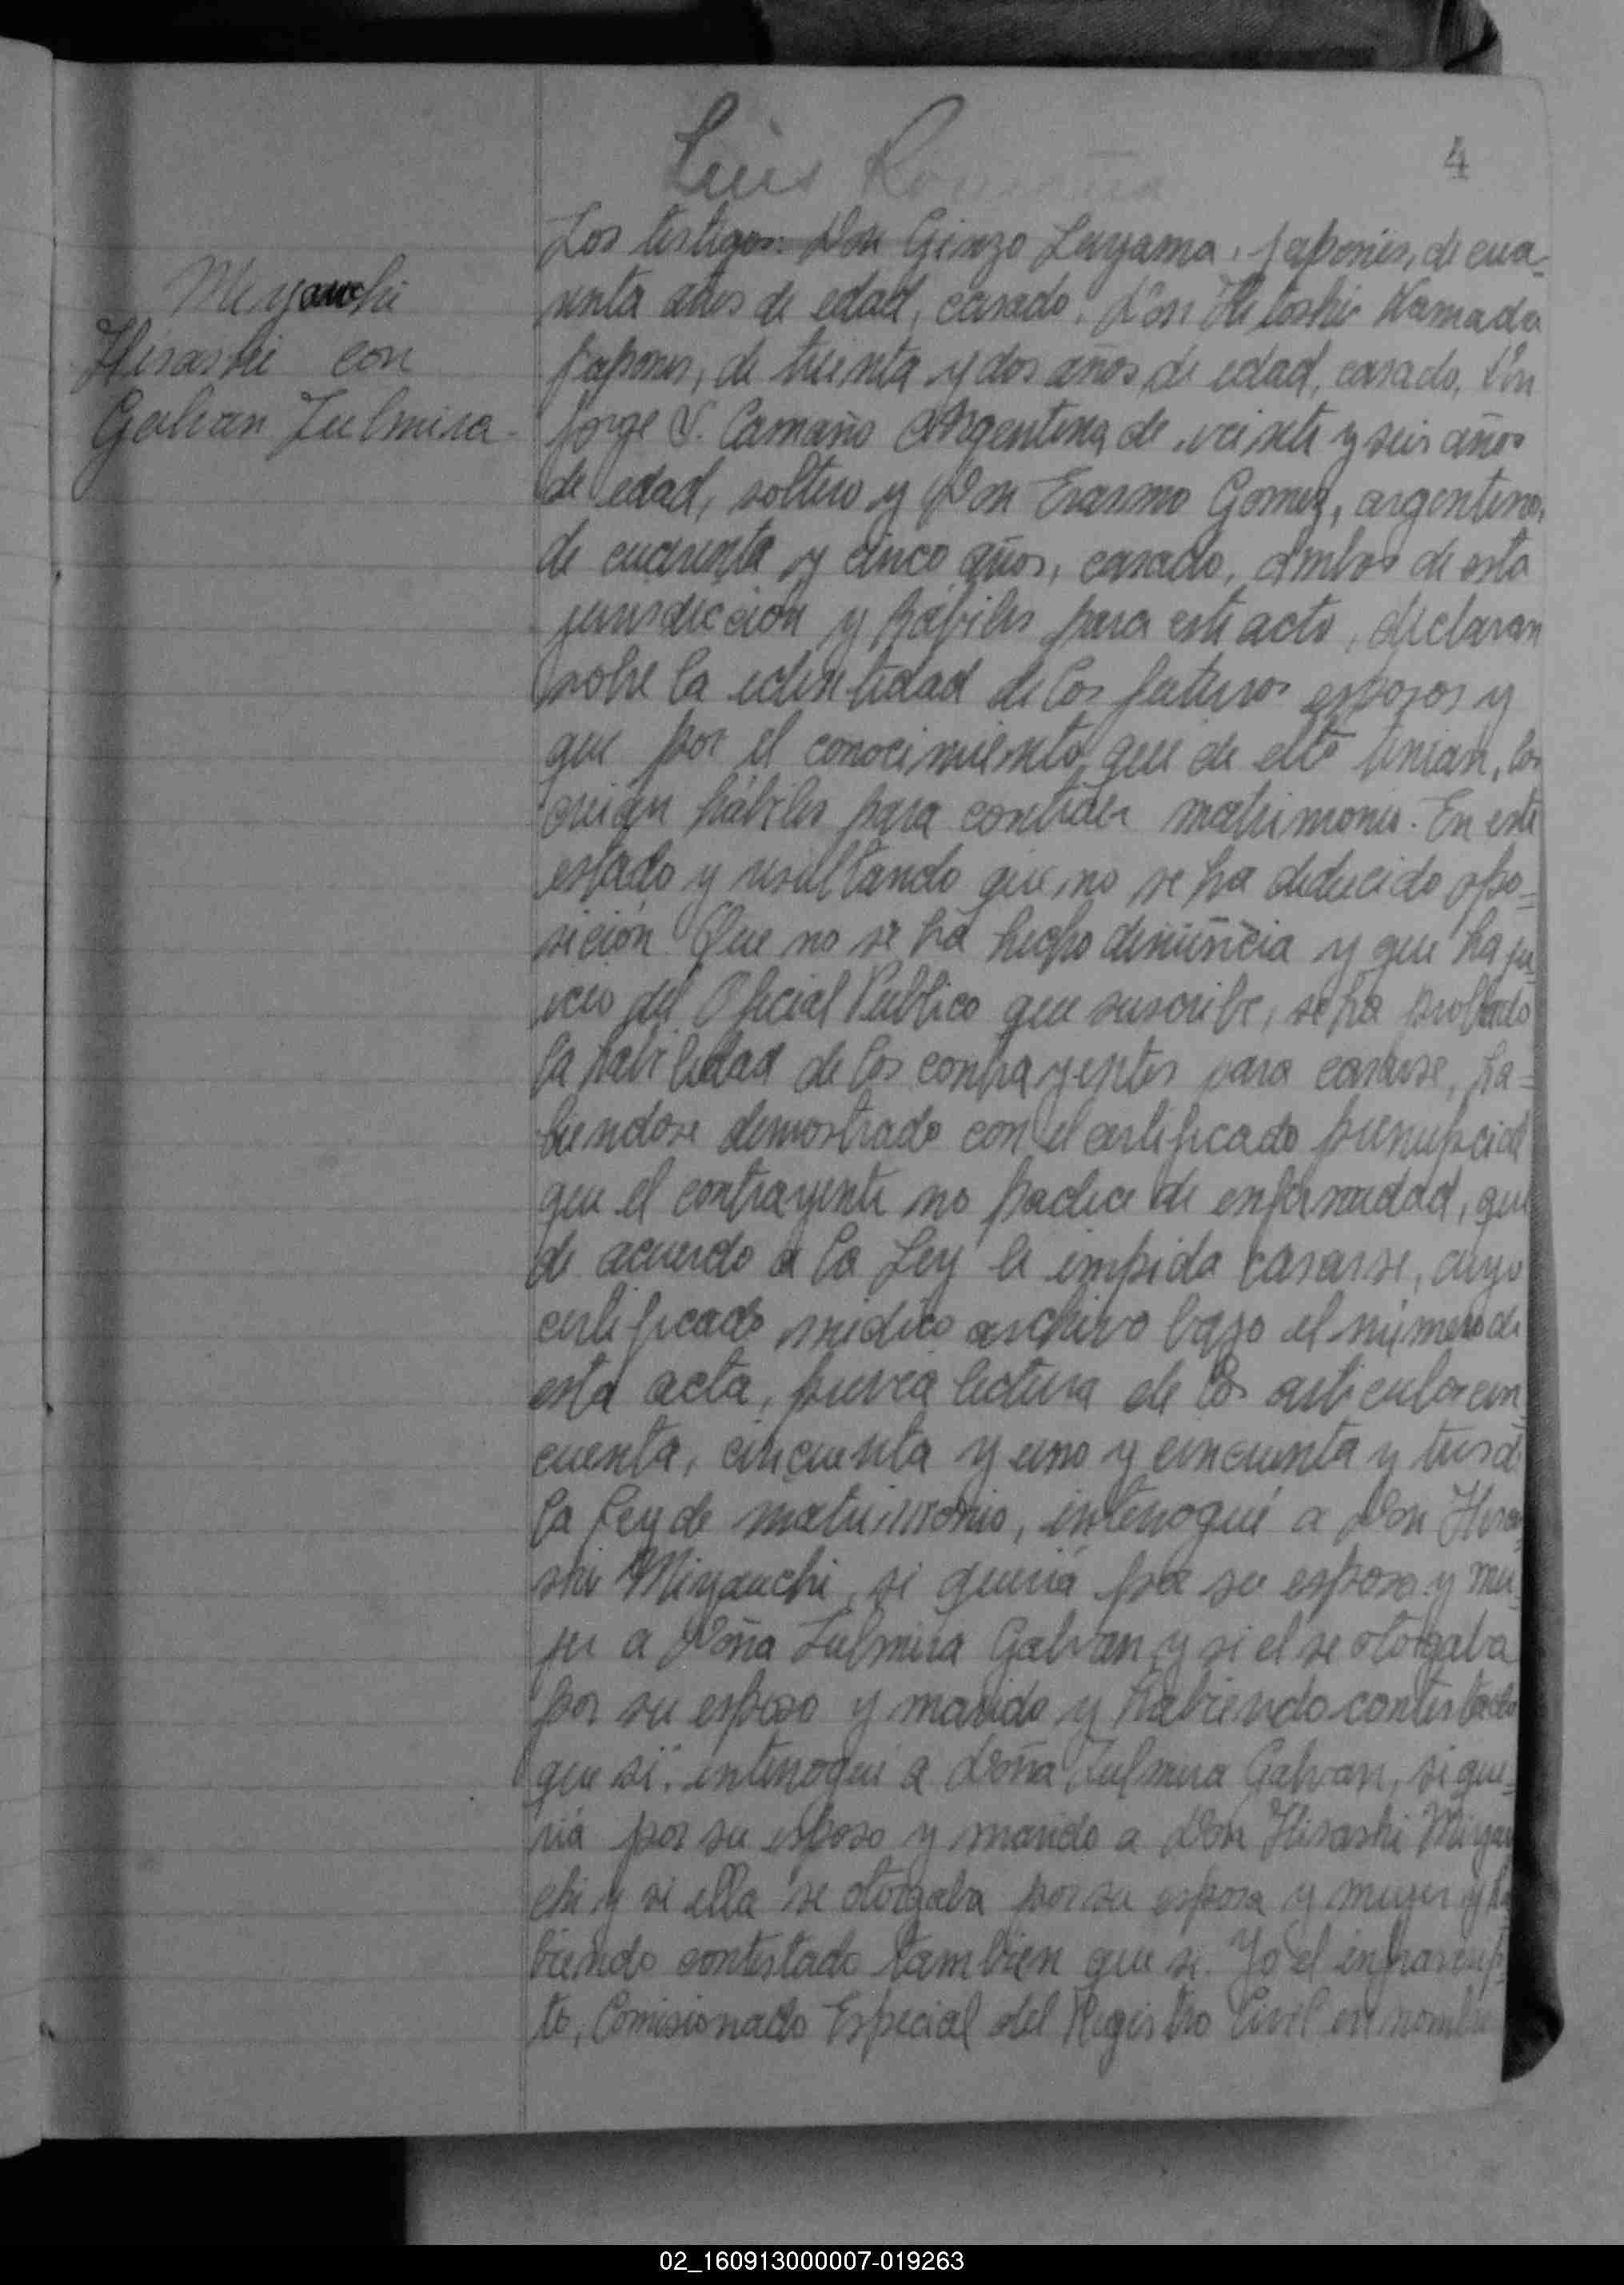 4
Luis
Miyauchi
Hisashi con
Galvan Zulmira.
Los testigos: Don Ginzo Luyama, japonés, de cua-
renta años de edad, casado. Don Hitoshi Hamada
japones, de treinta y dos años de edad, casado, Don
Jorge V. Camaño Argentino, de veinte y seis años
de edad, soltero y Don Erasmo Gomez, argentino,
de cuarenta y cinco años, casado, ambos de esta
jurisdiccion y hábiles para este acto, declaran
sobre la identidad de los futuros esposos y
que por el conocimiento que de ello tenian, los
creían hábiles para contraer matrimonio. En este
estado y resultando que no se ha deducido opo-
sición. Que no se ha hecho denuncia y que ha ju-
icio del Oficial Publico que suscribe, se ha probado
la habilidad de los contrayentes para casarse, ha-
biendose demostrado con el certificado prenupcial
que el contrayente no padece de enfermedad, que
de acuerdo a la Ley le impida casarse, cuyo
certificado médico archivo bajo el número de
esta acta, previa lectura de los articulos cin-
cuenta, cincuenta y uno y cincuenta y tres de
la Ley de matrimonio, interrogué a Don Hisa-
shi Miyauchi, si quería por su esposa y mu-
jer a Doña Zulmira Galvan y si el se otorgaba
por su esposo y marido y habiendo contestado
que sí, interrogué a Doña Zulmira Galvan, si que-
ría por su esposo y marido a Don Hisashi Miyau-
chi y si ella se otorgaba por su esposa y mujer y ha-
biendo contestado tambien que si. Yo el infrascrip-
to, Comisionado Especial del Registro Civil en nombre
02_160913000007-019263